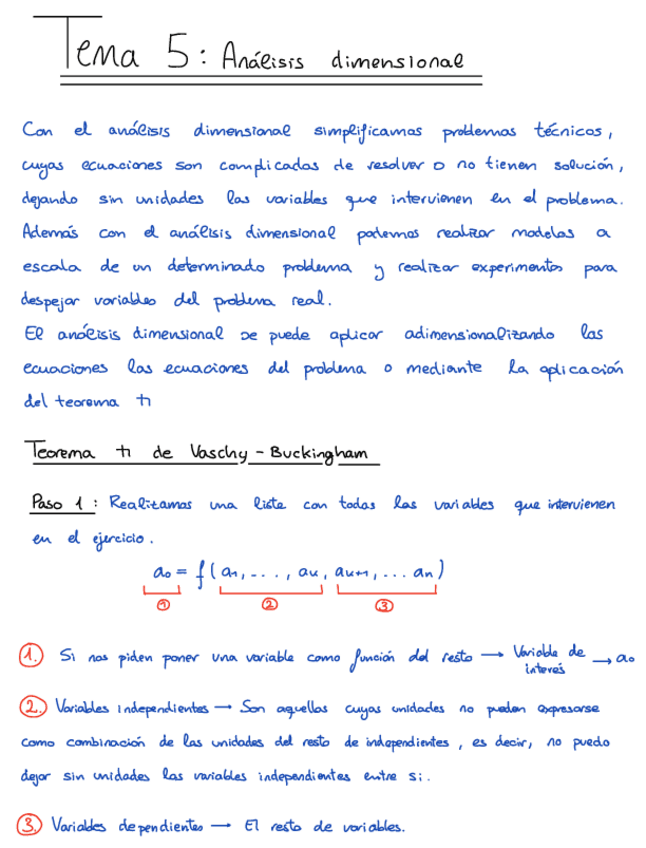 Tema 5: Análisis dimensional
Con el análisis dimensional simplificamos problemas técnicos,
cuyas ecuaciones son complicadas de resolver o no tienen solución,
dejando sin unidades las variables que intervienen en el problema.
Además con el análisis dimensional podemos realizar modelos a
escala de un determinado problema y realizar experimentos para
despejar variables del problema real.
El análisis dimensional se puede aplicar adimensionalizando las
ecuaciones las ecuaciones del problema o mediante la aplicación
del teorema π
Teorema π de Vaschy-Buckingham
Paso 1: Realizamos una lista con todas las variables que intervienen
en el ejercicio.
a₀ = f(a₁,..., aₖ, aₖ₊₁,... aₙ)
① ② ③
1. Si nos piden poner una variable como función del resto → Variable de interés → a₀
2. Variables independientes → Son aquellas cuyas unidades no pueden expresarse
como combinación de las unidades del resto de independientes, es decir, no puedo
dejar sin unidades las variables independientes entre si.
3. Variables dependientes → El resto de variables.